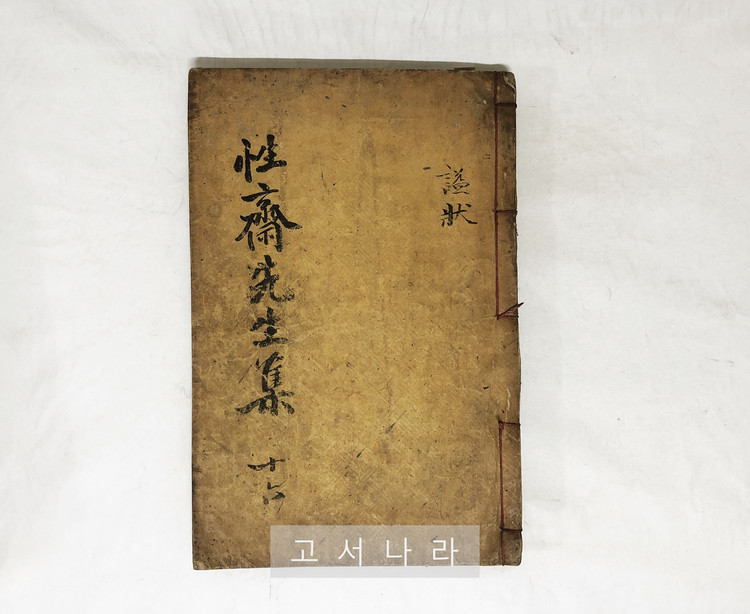 諡狀
性齋先生集 十六
고서나라